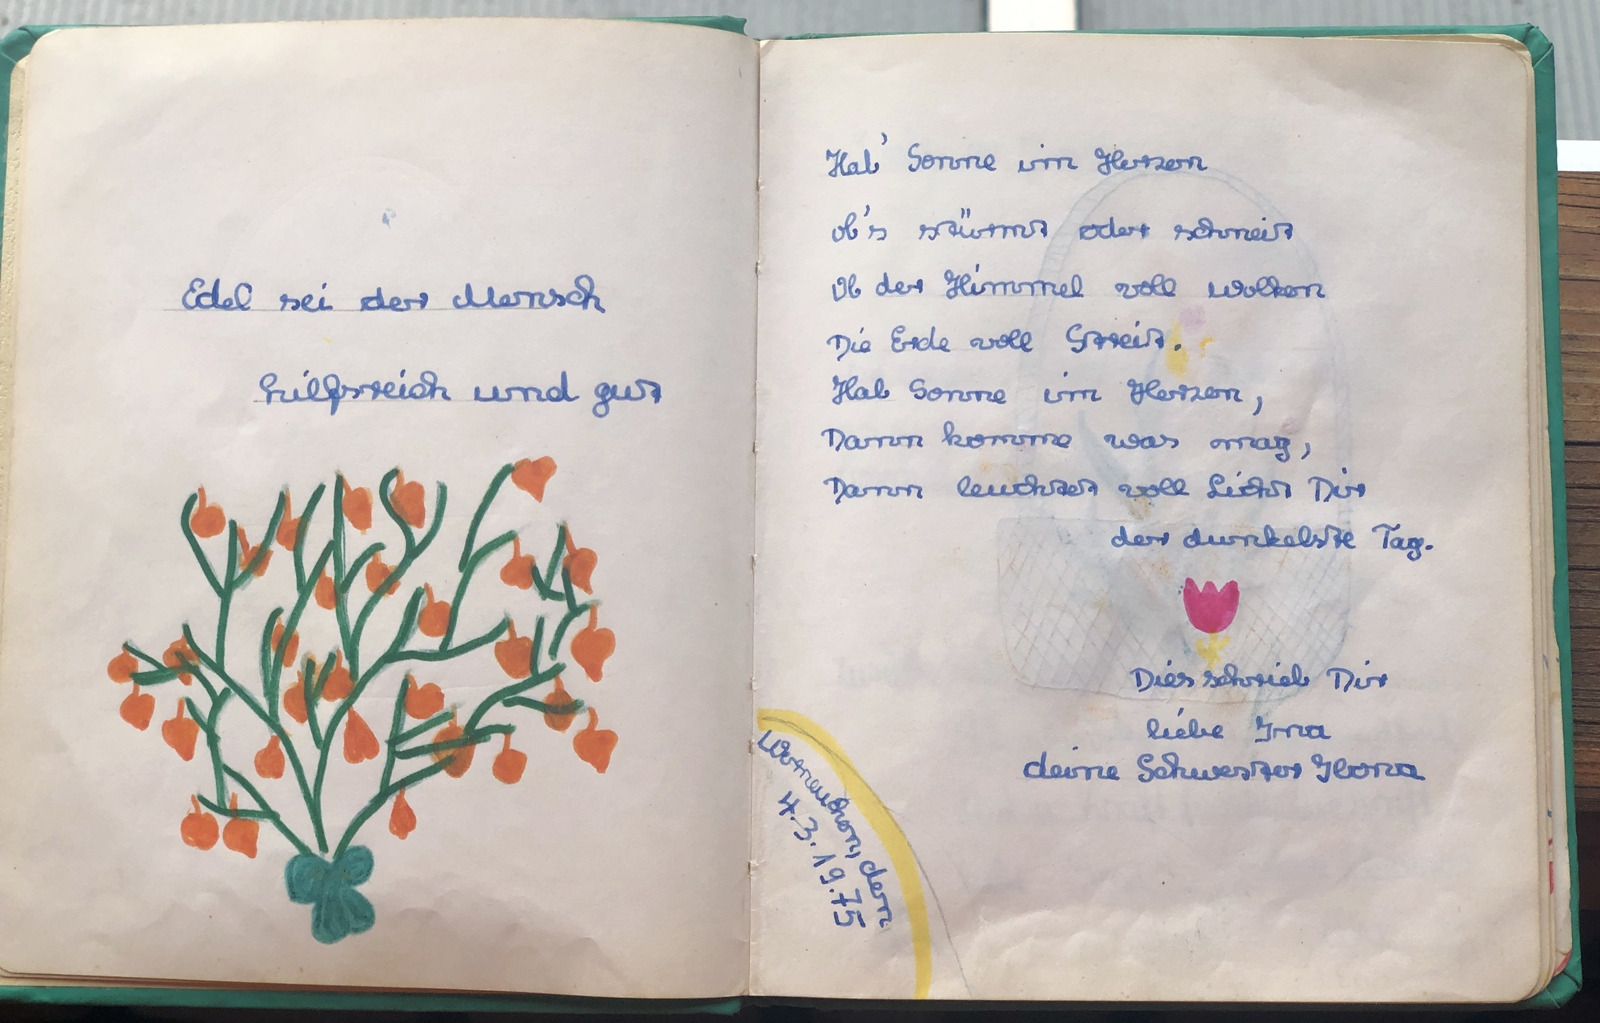 Edel sei der Mensch
hilfsreich und gut
Hab' Sonne im Herzen
ob's stürmt oder schneit
Ob der Himmel voll Wolken
Die Erde voll Streit.
Hab Sonne im Herzen,
Dann komme was mag,
Dann leuchtet voll Licht Dir
der dunkelste Tag.
Dies schrieb Dir
liebe Ina
deine Schwester Ilona
Werneuchen, den
4.3.1975